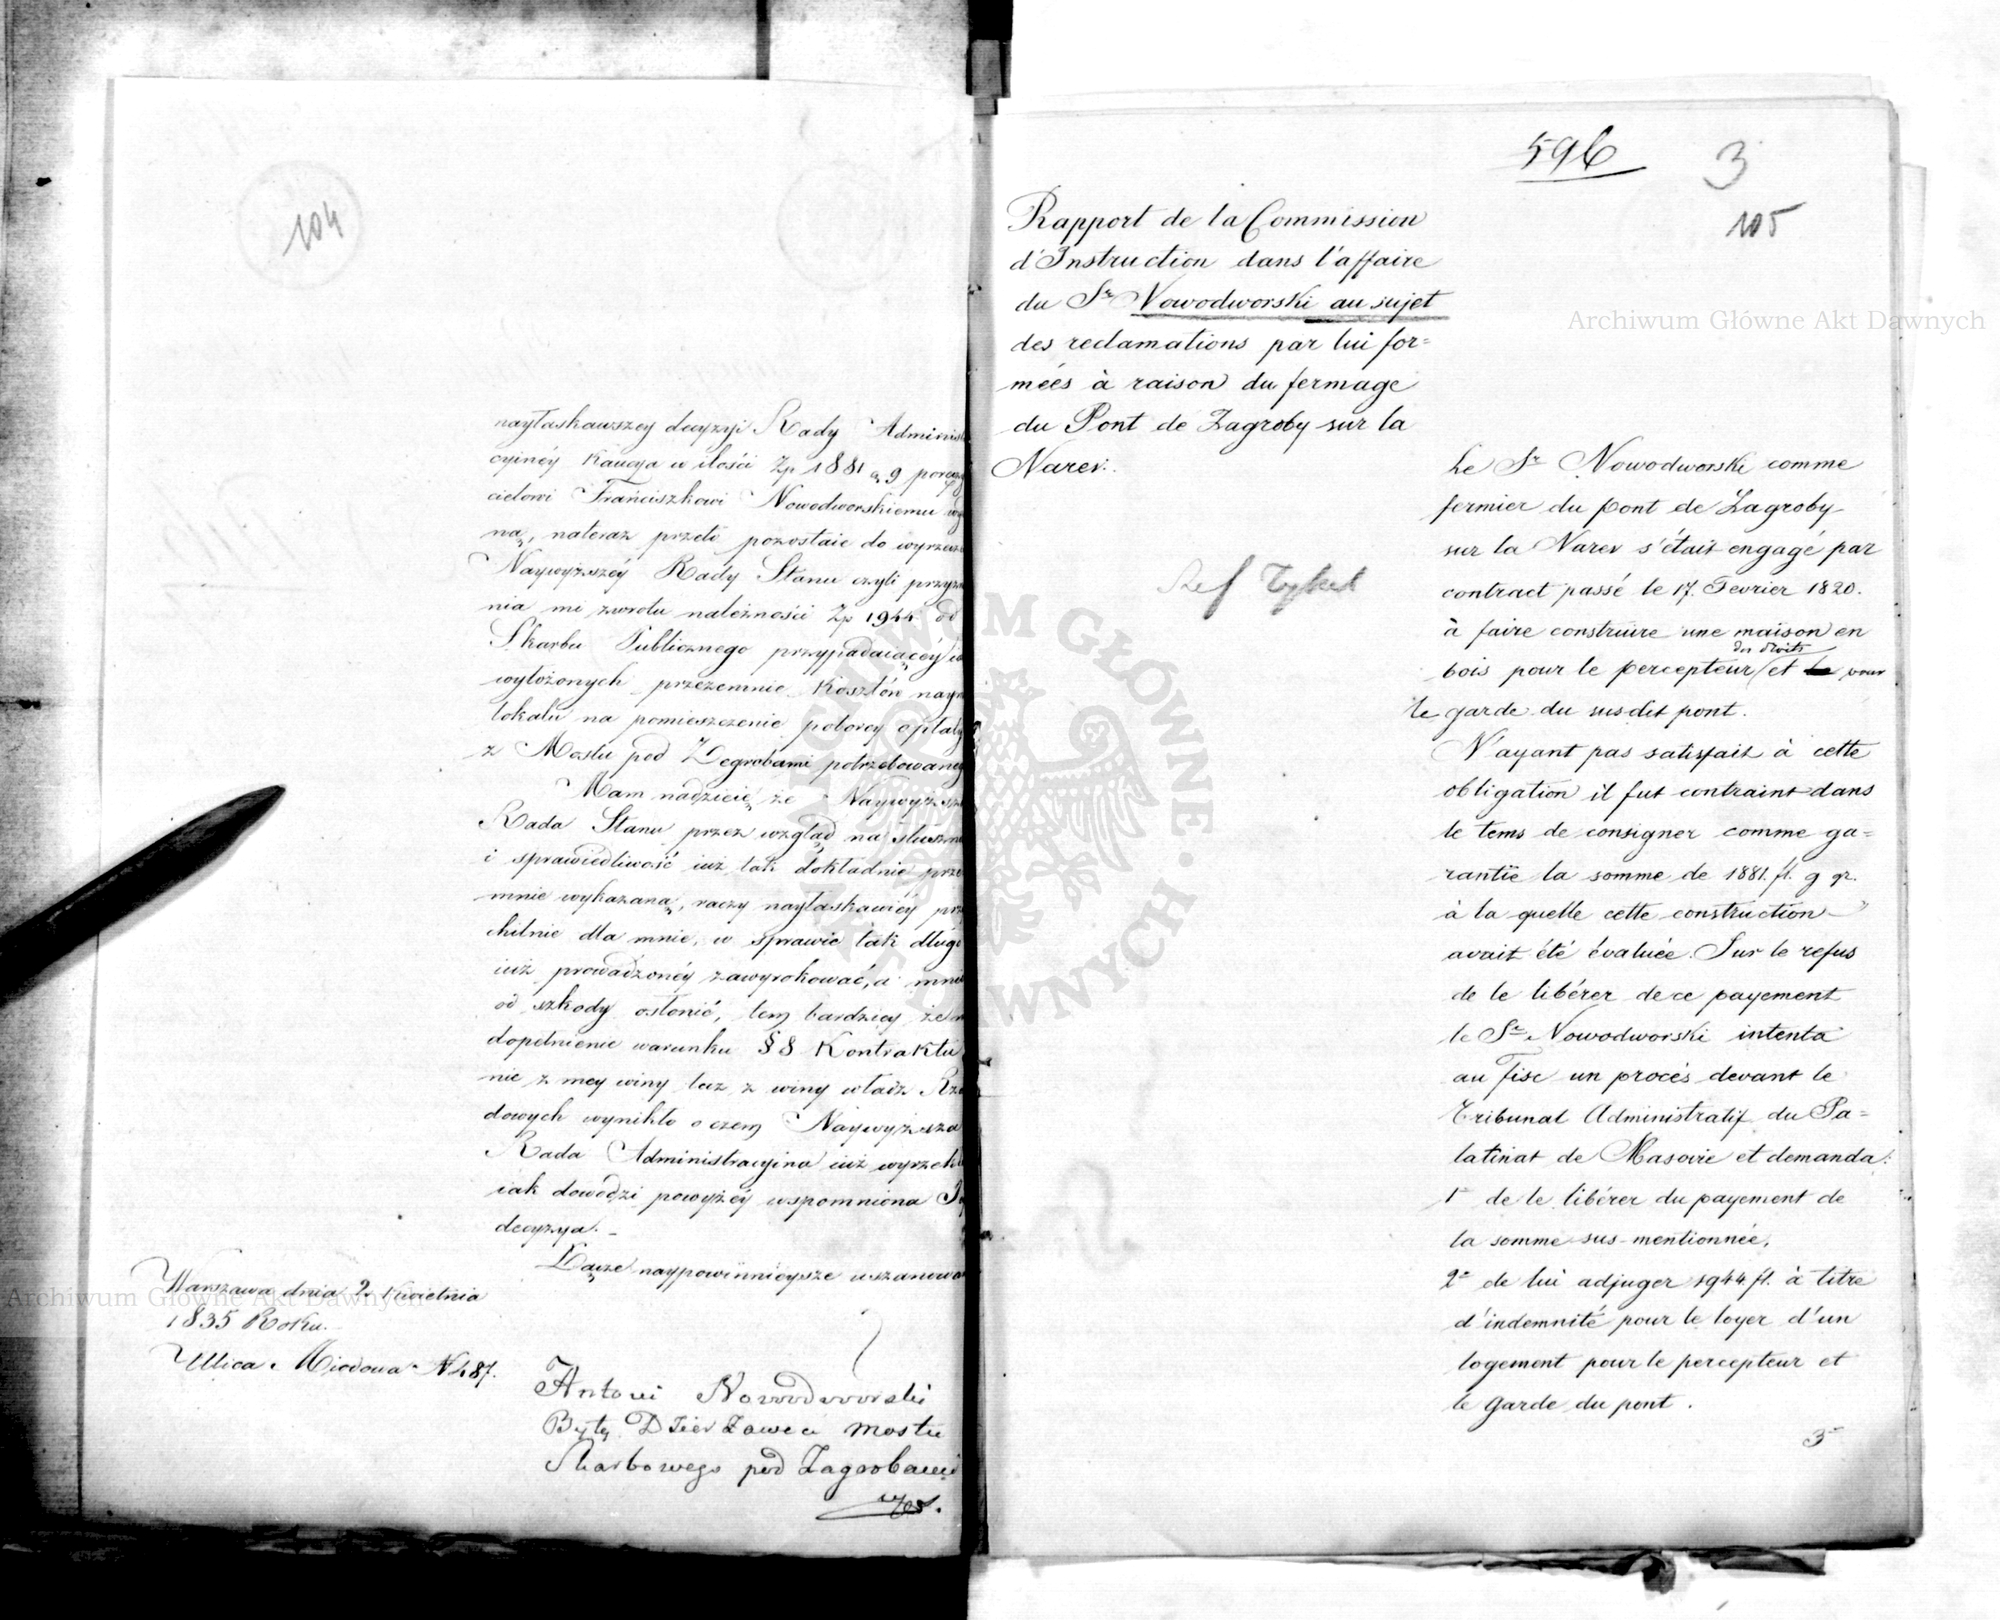 104
nayłaskawszey decyzyi Rady Adminis
cyinéy Kaucya w ilości Zp 1881 g 9 poręczy
cielowi Franciszkowi Nowodworskiemu
ną, nateraz przeto pozostaie do wyrzecze
Naywyższéy Rady Stanu czyli przyzna
nia mi zwrotu należności Zp 1944 od
Skarbu Publicznego przypadaiącéy
wyłożonych przezemnie Kosztów naym
lokalu na pomieszczenie poborcy opłaty
z Mostu pod Zegrobami potrzebowaney
Mam nadzieię że Naywyższ
Rada Stanu przez wzgląd na słuszn
i sprawiedliwość iuż tak dokładnie prze
mnie wykazaną, raczy nayłaskawiéy prz
chilnie dla mnie, w sprawie tak długo
iuż prowadzonéy zawyrokować, a mnie
od szkody osłonić, tem bardziey że
dopełnienie warunku §8 Kontraktu
nie z mey winy lecz z winy władz Rzą
dowych wynikło o czem Naywyższa
Rada Administracyina iuż wyrzekła
iak dowodzi powyżéy wspomniona
decyzya._
Łączę naypowinnieysze uszanowa
Warszawa dnia 2 Kwietnia
1835 Roku.
Ulica Miodowa N 487.
Antoni Nowodworski
Były Dzierżawca mostu
Skarbowego pod Zagrobami
596
3
105
Rapport de la Commission
d'Instruction dans l'affaire
du Sr Nowodworski au sujet
des reclamations par lui for=
mées à raison du fermage
du Pont de Zagroby sur la
Narev.
Ref Tykel
Le Sr Nowodworski comme
fermier du pont de Zagroby
sur la Narev s'était engagé par
contract passé le 17. Fevrier 1820.
à faire construire une maison en
des droits
bois pour le percepteur et pour
le garde du sus-dit pont.
N'ayant pas satisfait à cette
obligation il fut contraint dans
le tems de consigner comme ga=
rantie la somme de 1881. fl. 9 gr.
à la quelle cette construction
avait été évaluée. Sur le refus
de le libérer de ce payement
le Sr Nowodworski intenta
au Fisc un procés devant le
Tribunal Administratif du Pa=
latinat de Masovie et demanda:
1o de le libérer du payement de
la somme sus-mentionnée,
2o de lui adjuger 1944 fl. à titre
d'indemnité pour le loyer d'un
logement pour le percepteur et
le garde du pont.
3o
Archiwum Główne Akt Dawnych
Archiwum Główne Akt Dawnych
ARCHIWUM GŁÓWNE AKT DAWNYCH